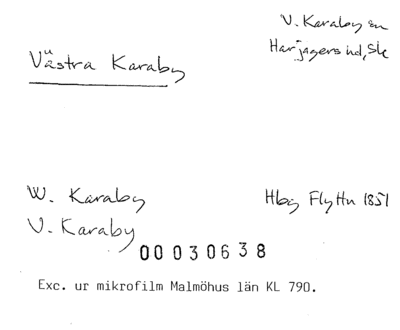 V. Karaby sn
Harjagers hd, Sk
Västra Karaby
W. Karaby
Hbg Flyttn 1851
V. Karaby
00030638
Exc. ur mikrofilm Malmöhus län KL 790.